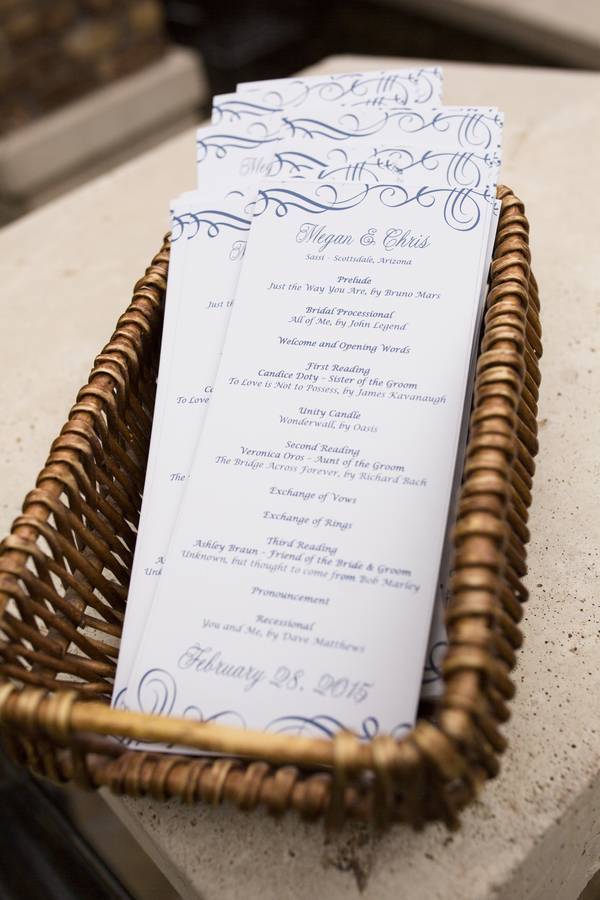 Megan & Chris
Sassi - Scottsdale, Arizona
Prelude
Just the Way You Are, by Bruno Mars
Bridal Processional
All of Me, by John Legend
Welcome and Opening Words
First Reading
Candice Doty - Sister of the Groom
To Love is Not to Possess, by James Kavanaugh
Unity Candle
Wonderwall, by Oasis
Second Reading
Veronica Oros - Aunt of the Groom
The Bridge Across Forever, by Richard Bach
Exchange of Vows
Exchange of Rings
Third Reading
Ashley Braun - Friend of the Bride & Groom
Unknown, but thought to come from Bob Marley
Pronouncement
Recessional
You and Me, by Dave Matthews
February 28, 2015